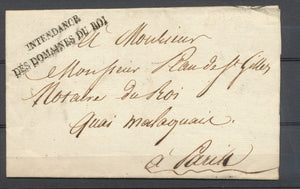 INTENDANCE
DES DOMAINES DU ROI
A Monsieur
Monsieur Plan de St Gilles
Notaire du Roi
Quai malaquais
à Paris